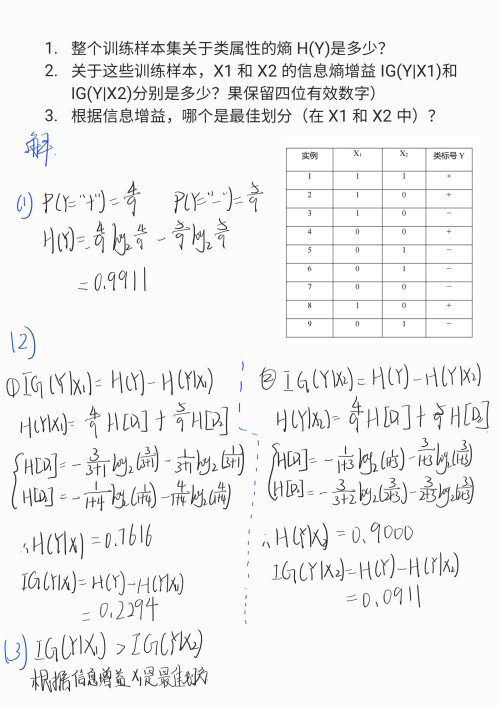 1. 整个训练样本集关于类属性的熵 H(Y)是多少？
2. 关于这些训练样本，X1 和 X2 的信息熵增益 IG(Y|X1)和
IG(Y|X2)分别是多少？果保留四位有效数字）
3. 根据信息增益，哪个是最佳划分（在 X1 和 X2 中）？
解.
实例 X₁ X₂ 类标号 Y
1 1 1 +
2 1 0 +
3 1 0 −
4 0 0 +
5 0 1 −
6 0 1 −
7 0 0 −
8 1 0 +
9 0 1 −
(1) P(Y="+")=4/9 P(Y="−")=5/9
H(Y)=-4/9 log₂ 4/9 − 5/9 log₂ 5/9
=0.9911
(2)
① IG(Y|X₁)=H(Y)−H(Y|X₁)
H(Y|X₁)= 4/9 H[D₁] + 5/9 H[D₂]
H[D₁]=− 3/3+1 log₂(3/3+1)− 1/3+1 log₂(1/3+1)
H[D₂]=− 1/1+4 log₂(1/1+4)− 4/1+4 log₂(4/1+4)
∴H(Y|X₁)=0.7616
IG(Y|X₁)=H(Y)−H(Y|X₁)
=0.2294
② IG(Y|X₂)=H(Y)−H(Y|X₂)
H(Y|X₂)= 4/9 H[D₁] + 5/9 H[D₂]
H[D₁]=− 1/1+3 log₂(1/1+3)− 3/1+3 log₂(3/1+3)
H[D₂]=− 3/3+2 log₂(3/2+3)− 3/2+3 log₂(3/2+3)
∴H(Y|X₂)=0.9000
IG(Y|X₂)=H(Y)−H(Y|X₂)
=0.0911
(3) IG(Y|X₁) > IG(Y|X₂)
根据信息增益 X₁是最佳划分